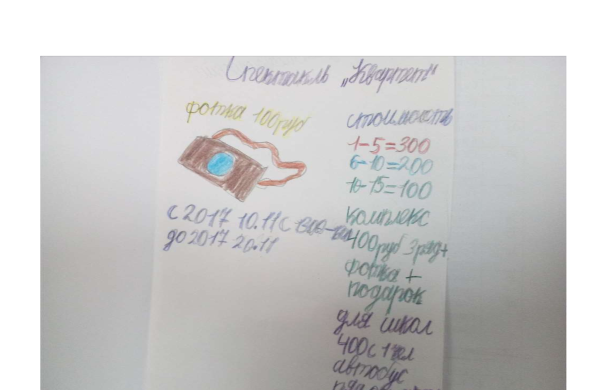 Спектакль „Квартет"
фотка 100 руб
стоимость
1-5=300
6-10=200
10-15=100
с 2017 10.11 с
до 2017 20.11
комплекс
400 руб 3 ряд +
фотка +
подарок
для школ
400 с 1 чел
автобус